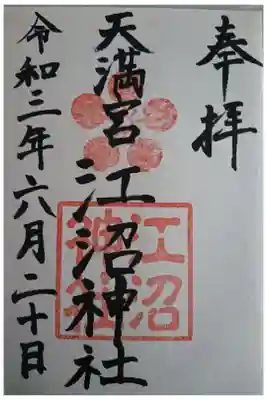 奉拝
天満宮 江沼神社
令和三年六月二十日
江沼
神社